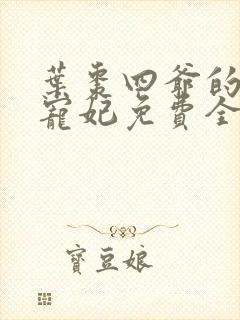 葉棗四爺的
寵妃免費全
寶豆娘